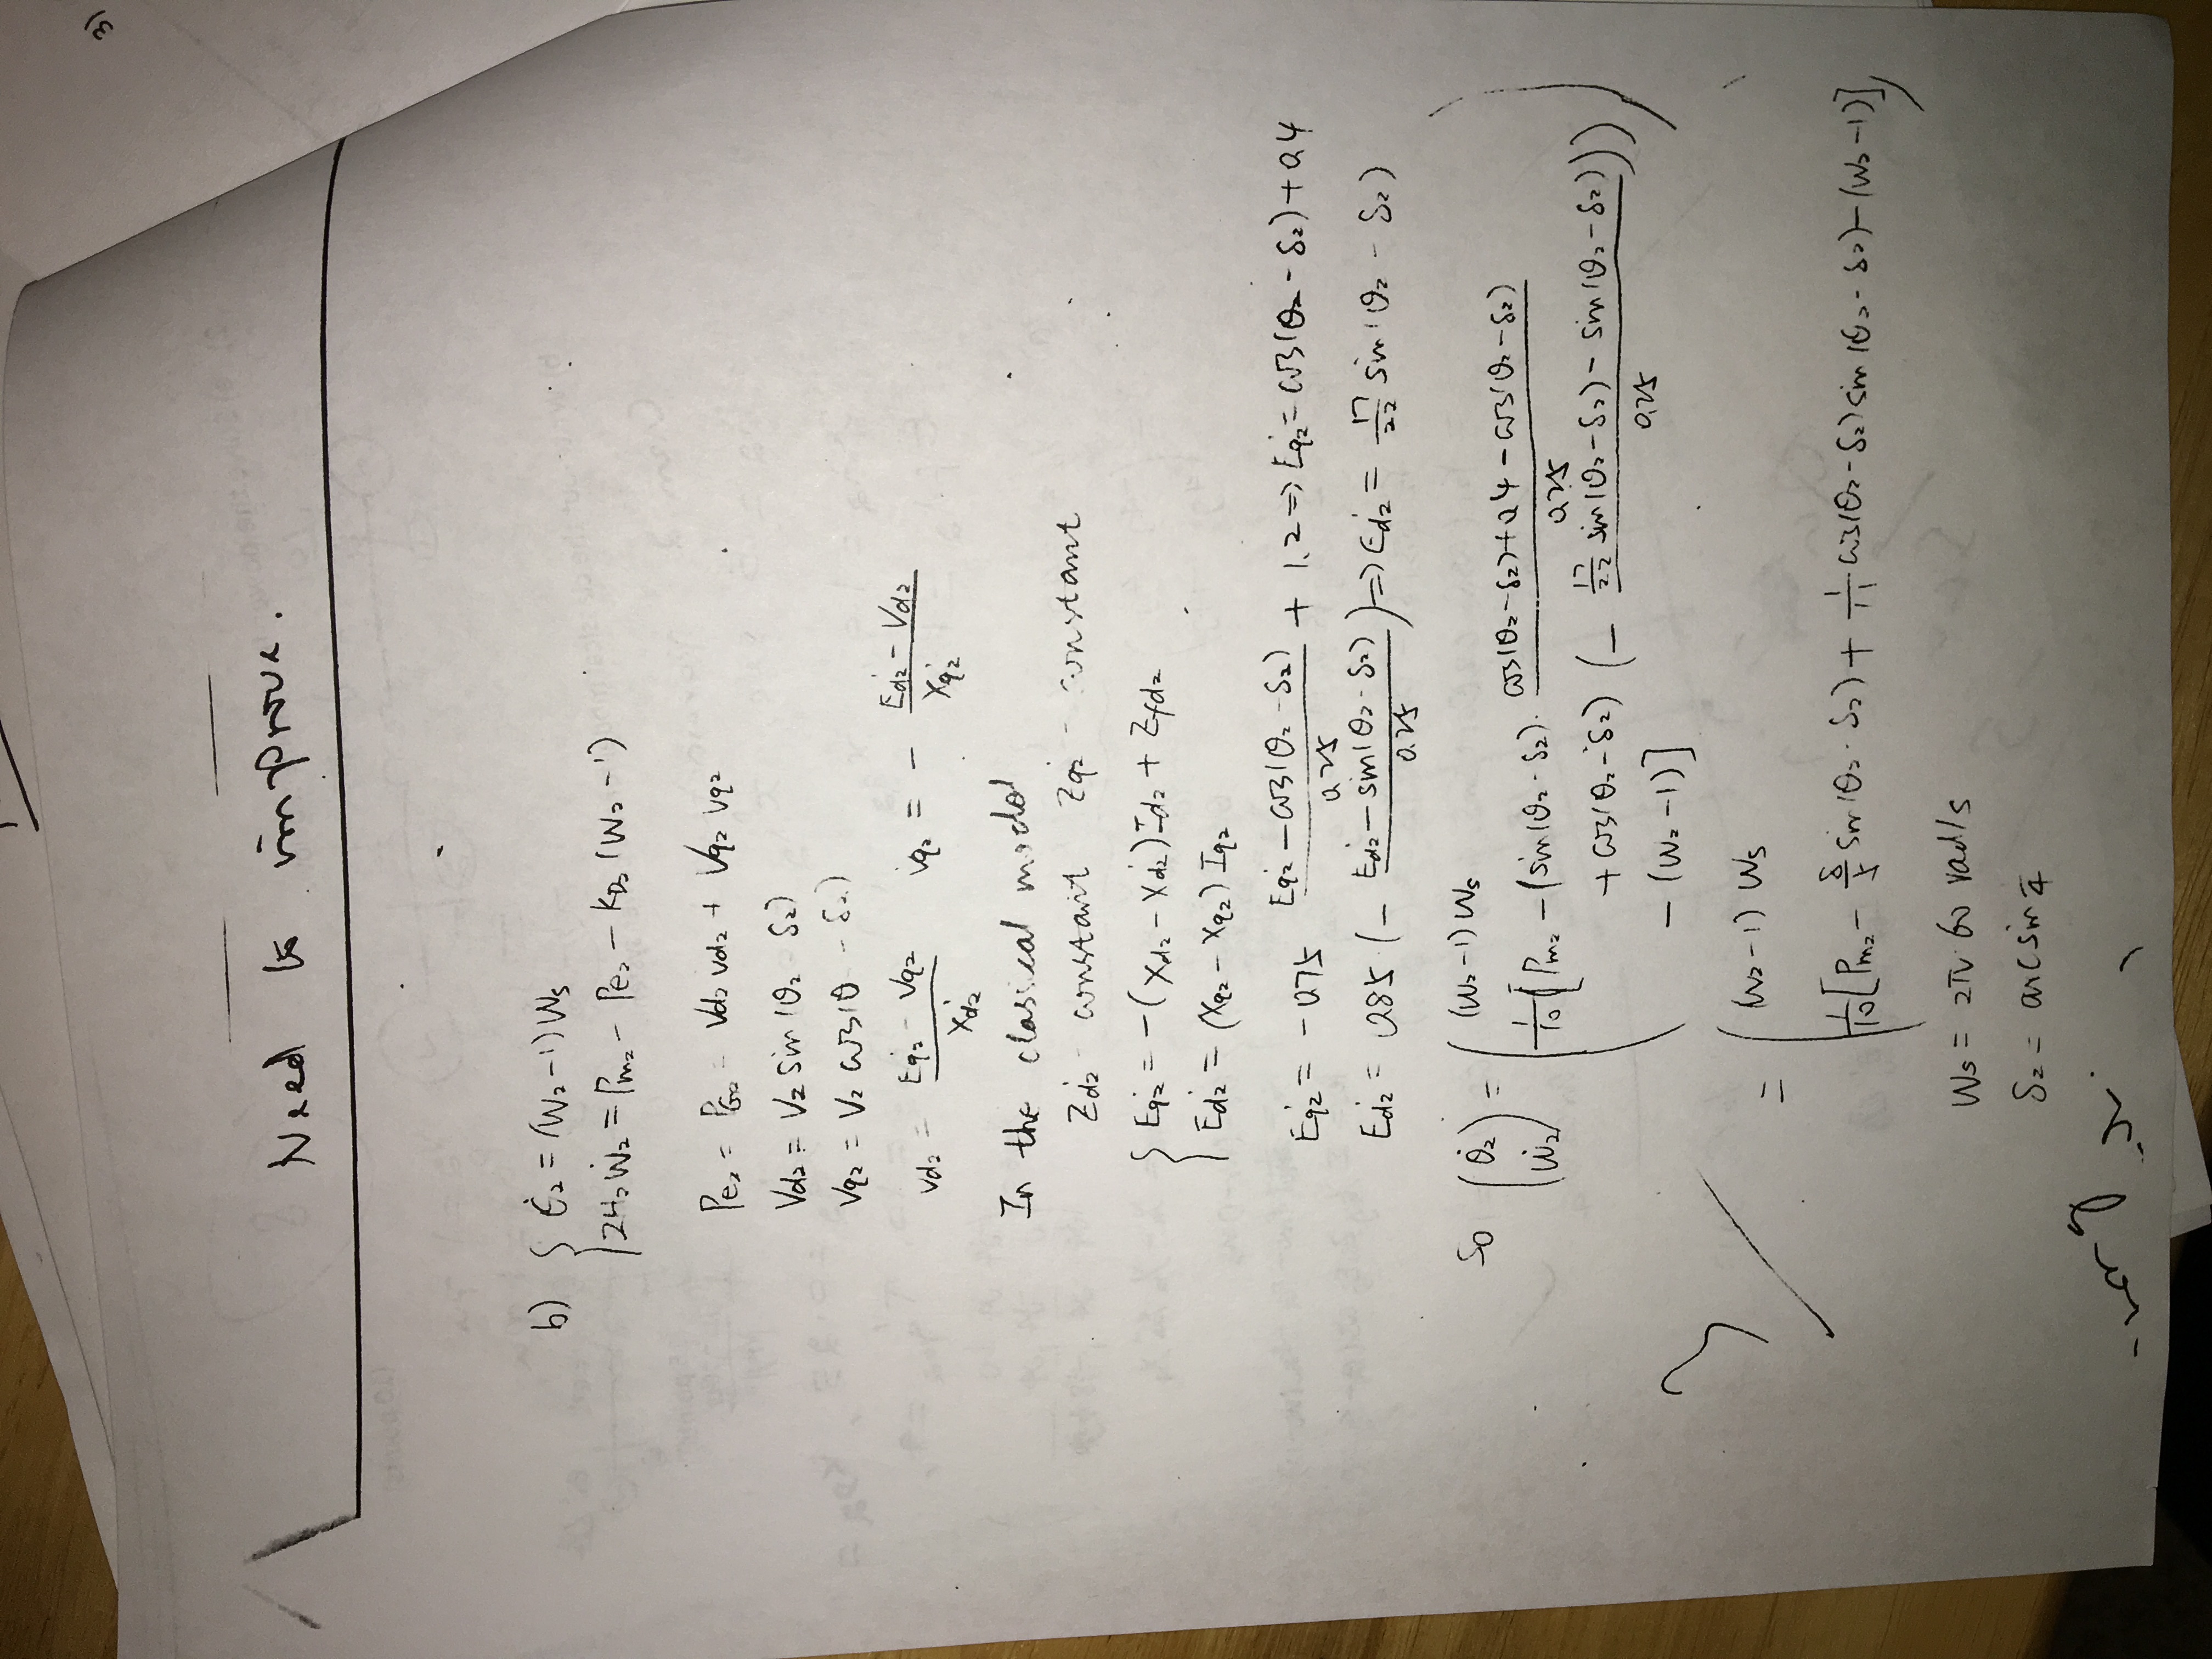 3)
Need to improve.
b) { Ė₂ = (W₂-1)Ws
2H₂Ẇ₂ = Pm₂ - Pe₂ - KD₂(W₂-1)
Pe₂ = PG₂ = Vd₂ vd₂ + Vq₂ vq₂
Vd₂ = V₂ sin(θ₂ - δ₂)
Vq₂ = V₂ cos(θ - δ₂)
vd₂ = (Eq'₂ - Vq₂)/Xd'₂ iq₂ = - (Ed'₂ - Vd₂)/Xq'₂
In the classical model
Zd'₂ - constant Zq'₂ - constant
{ Eq'₂ = -(Xd₂ - Xd'₂)Id₂ + Zfd₂
Ed'₂ = (Xq₂ - Xq₂) Iq₂
Eq'₂ = -0.75 (Eq'₂ - cos(θ₂ - δ₂))/0.25 + 1.2 => Eq'₂ = cos(θ₂ - δ₂) + 0.4
Ed'₂ = 0.85 (- (Ed'₂ - sin(θ₂ - δ₂))/0.25) => Ed'₂ = 17/22 sin(θ₂ - δ₂)
So (θ̇₂ ẇ₂) = ( (W₂-1)Ws
1/10 [Pm₂ - (sin(θ₂ - δ₂) · (cos(θ₂-δ₂) + 0.4 - cos(θ₂-δ₂))/0.25
+ cos(θ₂-δ₂) (- (17/22 sin(θ₂-δ₂) - sin(θ₂-δ₂))/0.25))
- (W₂-1)] )
= ( (W₂-1) Ws
1/10 [Pm₂ - 8/5 sin(θ₂ - δ₂) + 1/11 cos(θ₂-δ₂) sin(θ₂-δ₂) - (W₂-1)] )
Ws = 2π·60 rad/s
δ₂ = arcsin